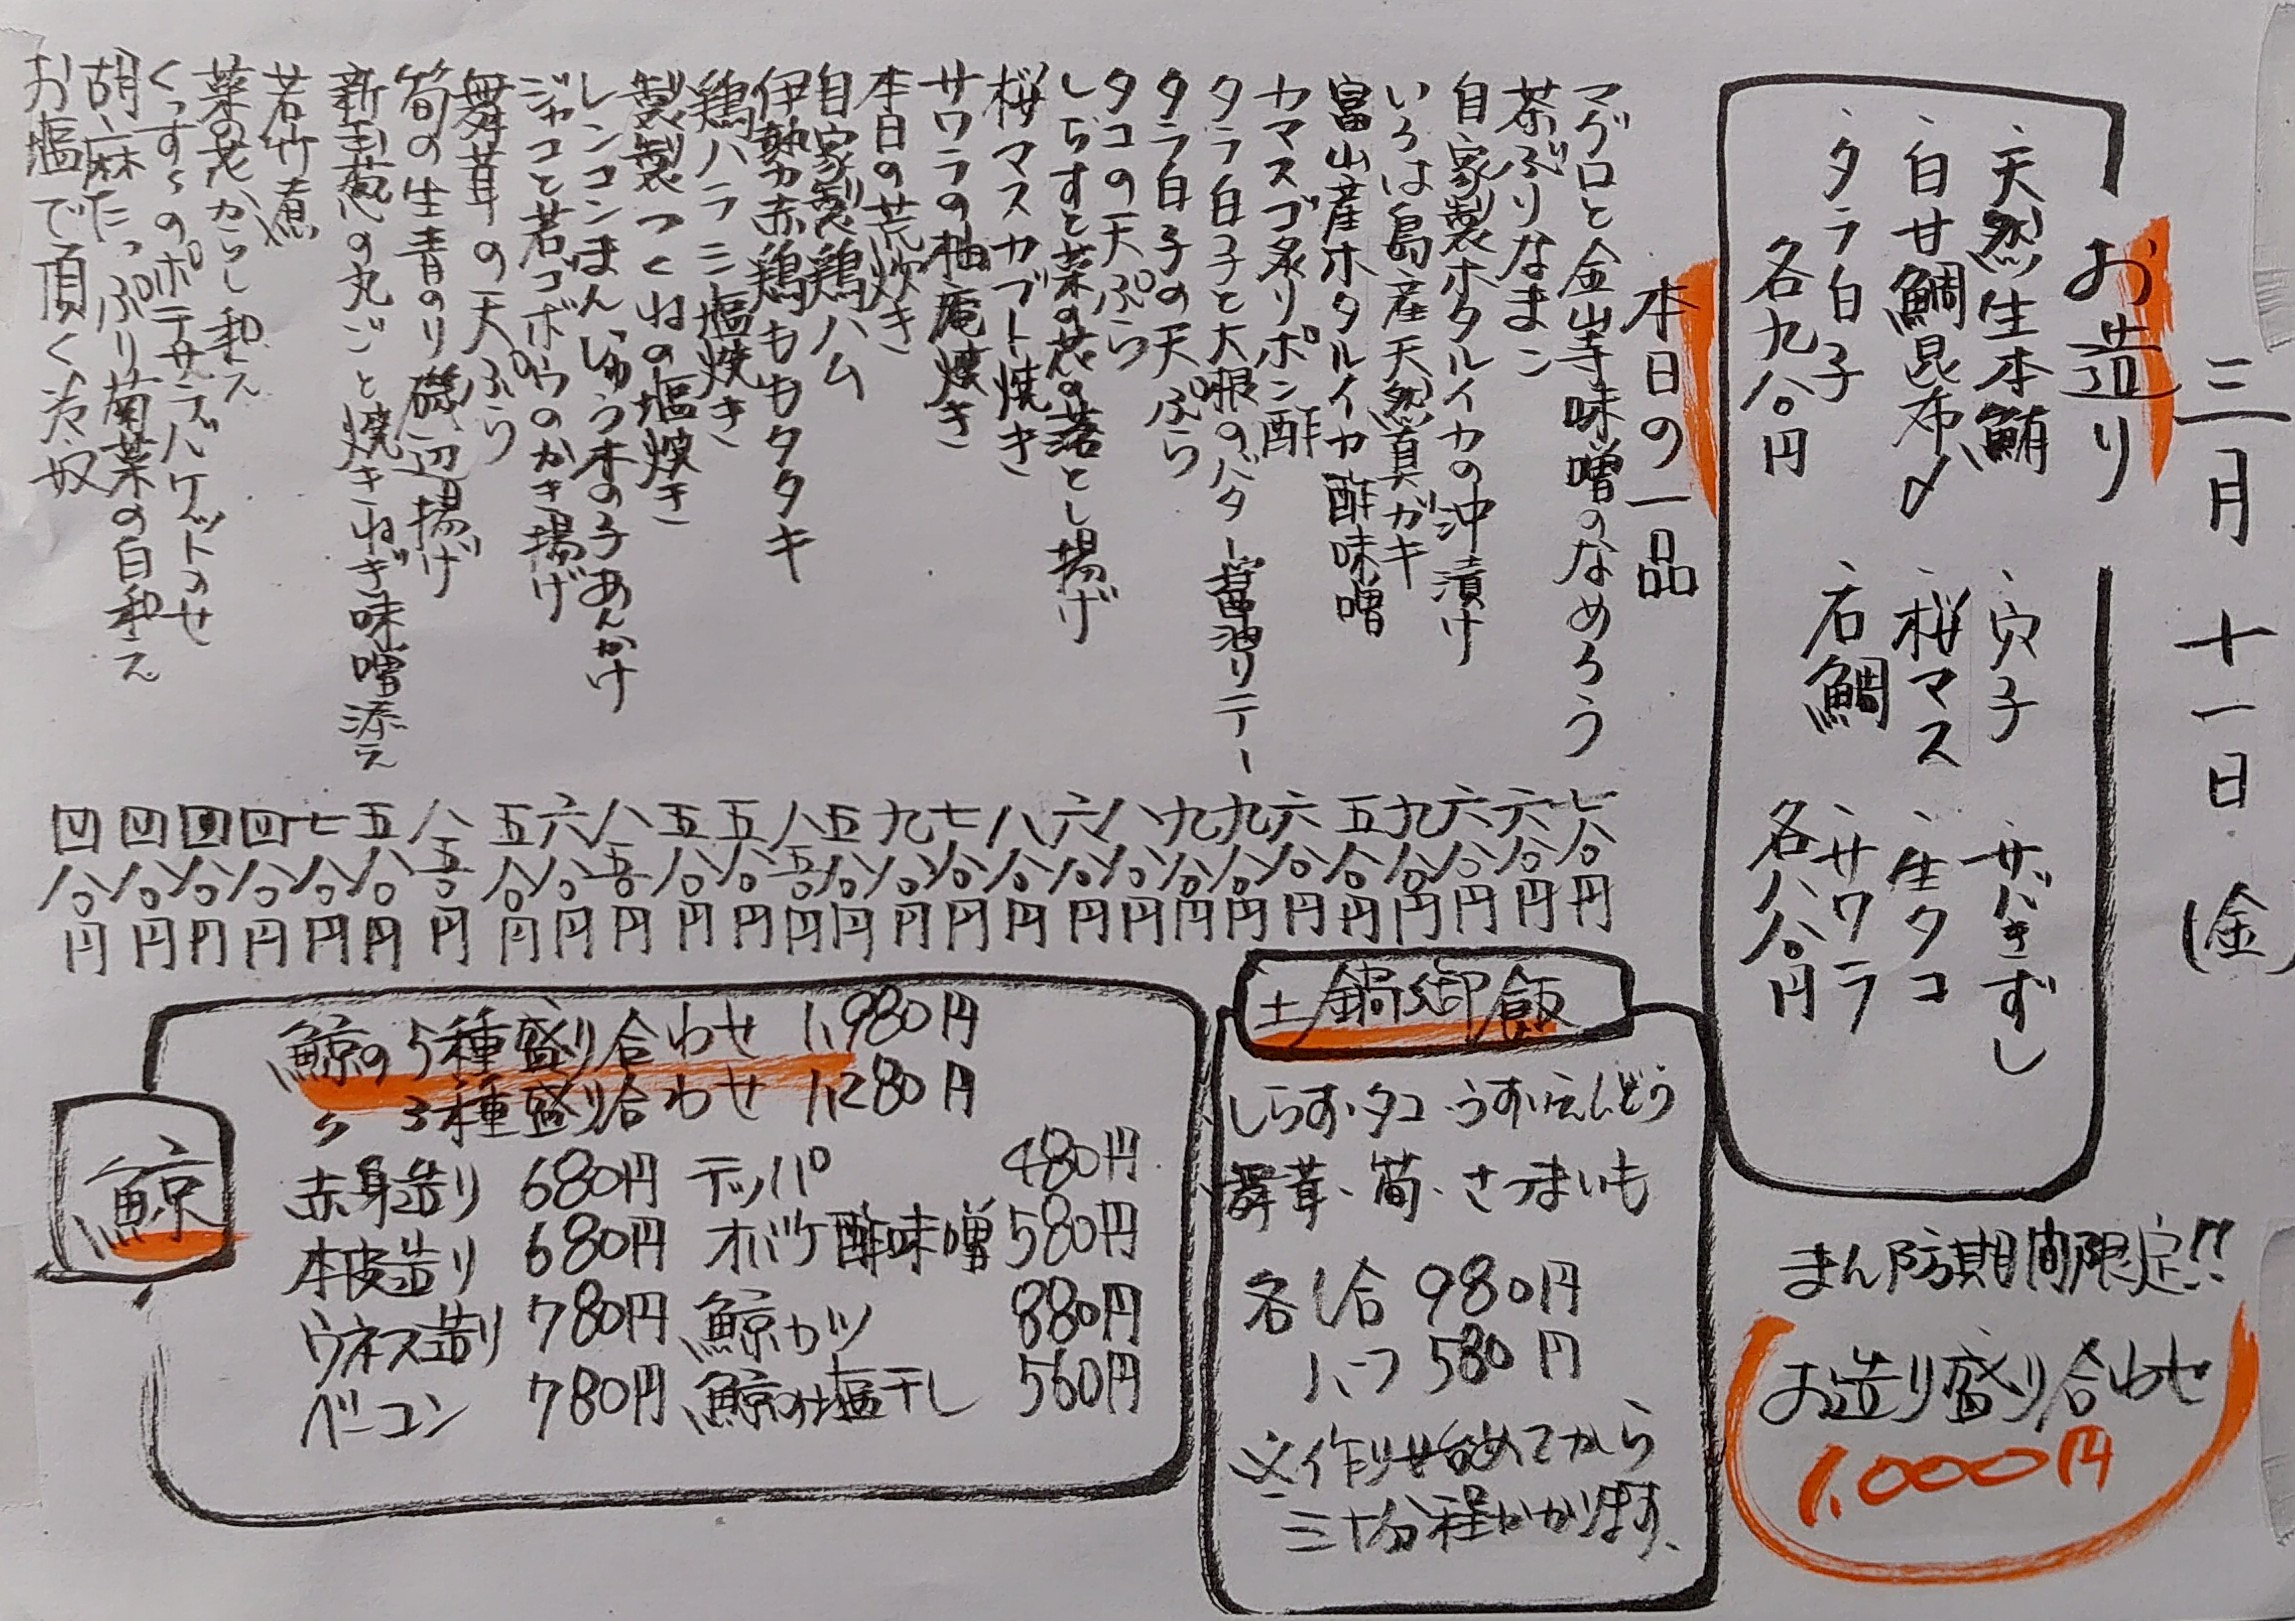 三月十一日(金)
お造り
・天然生本鮪
・白甘鯛昆布〆
・タラ白子
各九八〇円
・穴子
・桜マス
・石鯛
・サバきずし
・生タコ
・サワラ
各八八〇円
本日の一品
マグロと金山寺味噌のなめろう 七八〇円
茶ぶりなまこ 六八〇円
自家製ホタルイカの沖漬け 六八〇円
いろは島産天然真ガキ 九八〇円
富山産ホタルイカ酢味噌 五八〇円
カマスゴ炙りポン酢 六八〇円
タラ白子と大根のバター醤油ソテー 九八〇円
タラ白子の天ぷら 九八〇円
タコの天ぷら 八八〇円
しらすと菜の花の落とし揚げ 六八〇円
桜マスカブト焼き 八八〇円
サワラの柚庵焼き 七八〇円
本日の荒炊き 九八〇円
自家製鶏ハム 五八〇円
伊勢赤鶏ももタタキ 八五〇円
鶏ハラミ塩焼き 五八〇円
自家製つくねの塩焼き 五八〇円
レンコンまんじゅう木の子あんかけ 八五〇円
ジャコと若ゴボウのかき揚げ 六八〇円
舞茸の天ぷら 五八〇円
筍の生青のり磯辺揚げ 八五〇円
新玉葱の丸ごと焼きねぎ味噌添え 五八〇円
若竹煮 七八〇円
菜の花からし和え 四八〇円
くっすぅのポテサラバケットのせ 四八〇円
胡麻たっぷり菊菜の白和え 四八〇円
お塩で頂く冷奴 四八〇円
まん防期間限定!!
お造り盛り合わせ
1,000円
土鍋御飯
しらす・タコ・うすいえんどう
舞茸・筍・さつまいも
各1合 980円
ハーフ 580円
※作り始めてから
三十分程かかります、
鯨
鯨の5種盛り合わせ 1,980円
〃 3種盛り合わせ 1,280円
赤身造り 680円 テッパ 480円
本皮造り 680円 オバケ酢味噌 580円
ウネス造り 780円 鯨カツ 880円
ベーコン 780円 鯨の塩干し 560円